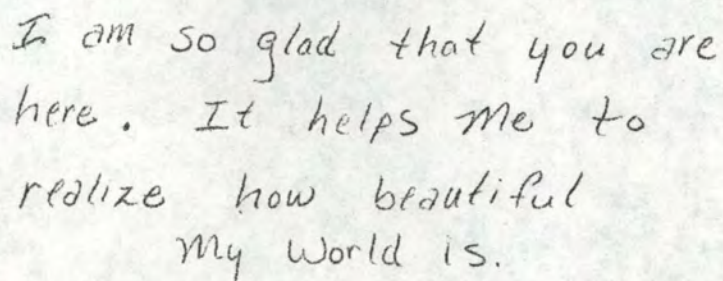 I am so glad that you are
here. It helps me to
realize how beautiful
My World is.